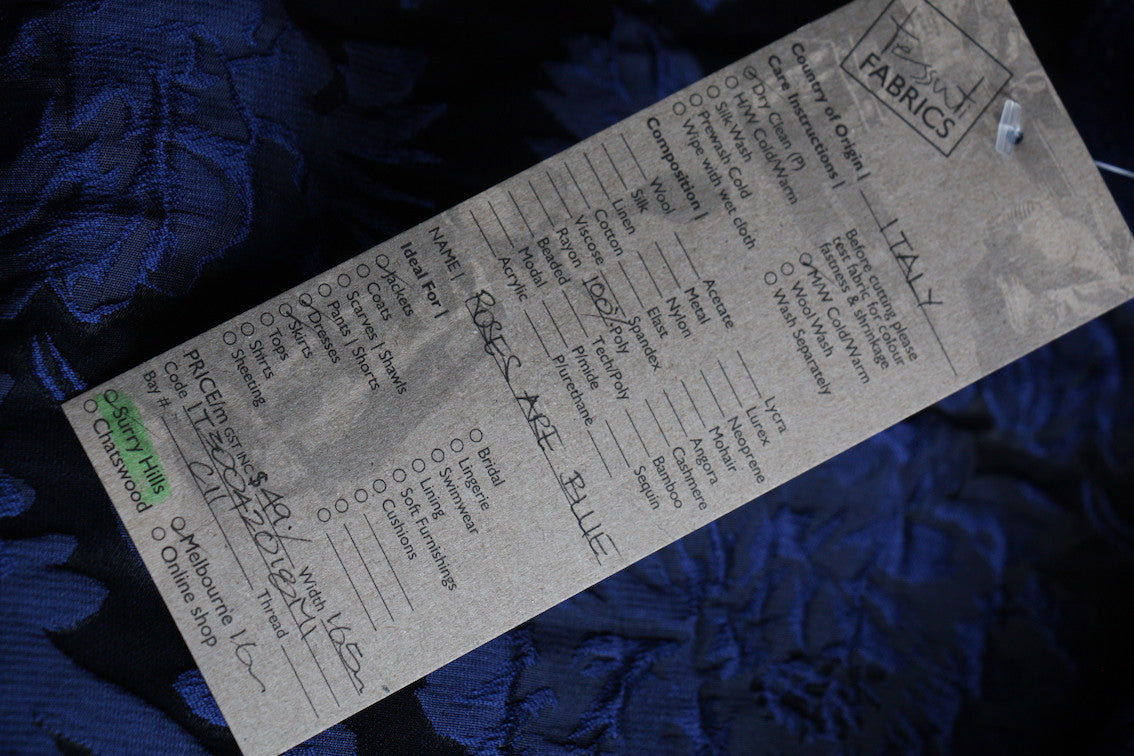 Tessuti
FABRICS
Country of Origin | ITALY
Care Instructions |
Before cutting please
test fabric for colour
fastness & shrinkage
Dry Clean (P)
H/W Cold/Warm
Silk Wash
Prewash Cold
Wipe with wet cloth
M/W Cold/Warm
Wool Wash
Wash Separately
Composition |
Wool
Linen
Silk
Cotton
Viscose
Rayon
Beaded
Modal
Acrylic
Acetate
Metal
Nylon
Elast
Spandex
100% Poly
Tech/Poly
P/mide
P/urethane
Lycra
Lurex
Neoprene
Mohair
Angora
Cashmere
Bamboo
Sequin
NAME | ROSES ARE BLUE
Ideal For |
Jackets
Coats
Scarves | Shawls
Pants | Shorts
Dresses
Skirts
Tops
Shirts
Sheeting
Bridal
Lingerie
Swimwear
Lining
Soft Furnishings
Cushions
PRICE/m GST INC $49.- Width 165m
Code
Bay # C11 Thread
Surry Hills
Chatswood
Melbourne 16m
Online shop